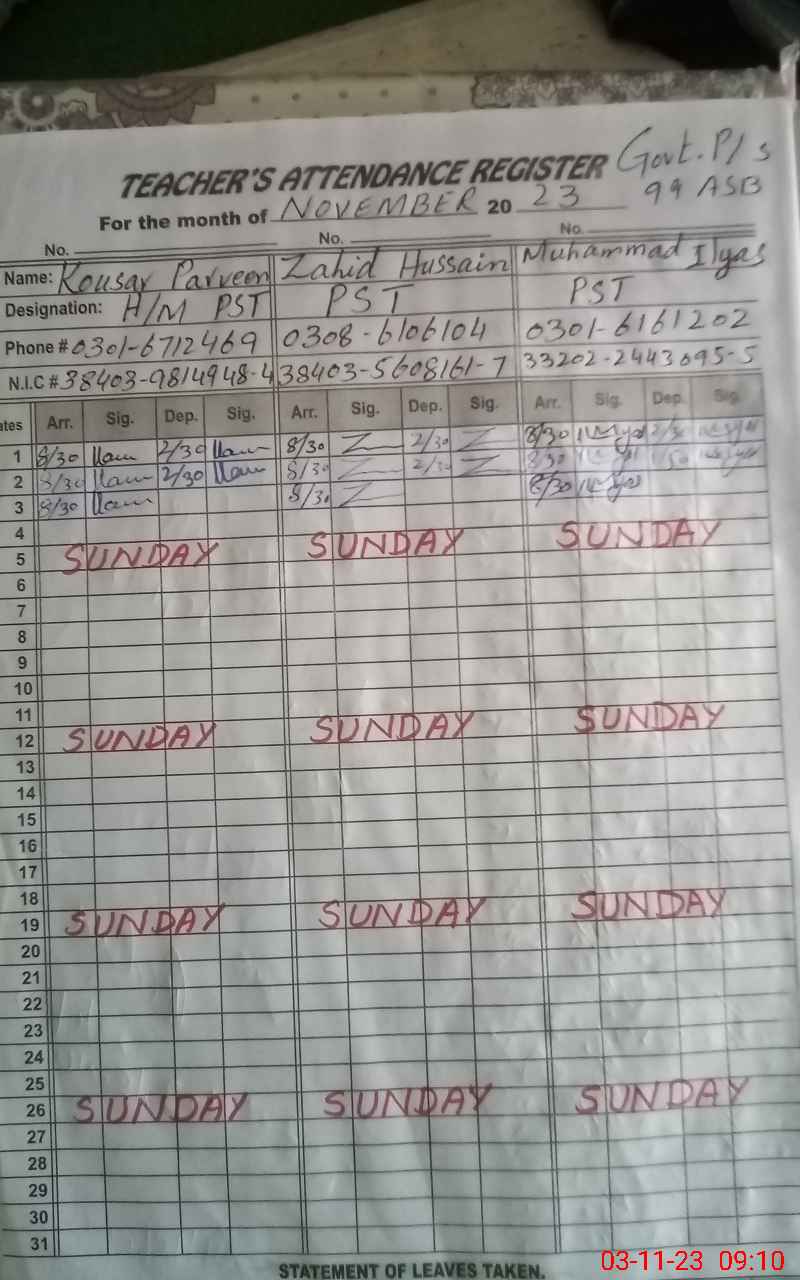 TEACHER'S ATTENDANCE REGISTER Govt. P/S
For the month of NOVEMBER 20 23 99 ASB
No. No. No.
Name: Kousar Parveen Zahid Hussain Muhammad Ilyas
Designation: H/M PST PST PST
Phone # 0301-6712469 0308-6106104 0301-6161202
N.I.C # 38403-9814948-4 38403-5608161-7 33202-2443095-5
ates Arr. Sig. Dep. Sig. Arr. Sig. Dep. Sig. Arr. Sig. Dep. Sig.
1 8/30 2/30 8/30 2/30 8/30 2/30
2 8/30 2/30 8/30 2/30 8/30
3 8/30 8/30 8/30
4
5 SUNDAY SUNDAY SUNDAY
6
7
8
9
10
11
12 SUNDAY SUNDAY SUNDAY
13
14
15
16
17
18
19 SUNDAY SUNDAY SUNDAY
20
21
22
23
24
25
26 SUNDAY SUNDAY SUNDAY
27
28
29
30
31
STATEMENT OF LEAVES TAKEN.
03-11-23 09:10